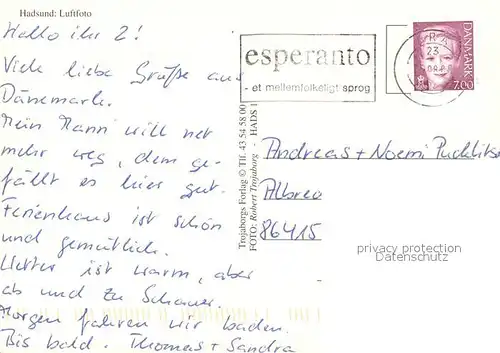 Hadsund: Luftfoto
Hallo ihr 2!
Viele liebe Grüße aus
Dänemark.
Mein Mann will net
mehr weg, dem ge-
fällt es hier gut.
Ferienhaus ist schön
und gemütlich.
Wetter ist warm, aber
ab und zu Schauer.
Morgen fahren wir baden.
Bis bald. Thomas + Sandra
Trojaborgs Forlag © Tlf. 43 54 58 00
FOTO: Robert Trojaborg - HADS 1
esperanto
- et mellemfolkeligt sprog
23
DANMARK
7.00
Andreas + Noemi
86415
privacy protection
Datenschutz